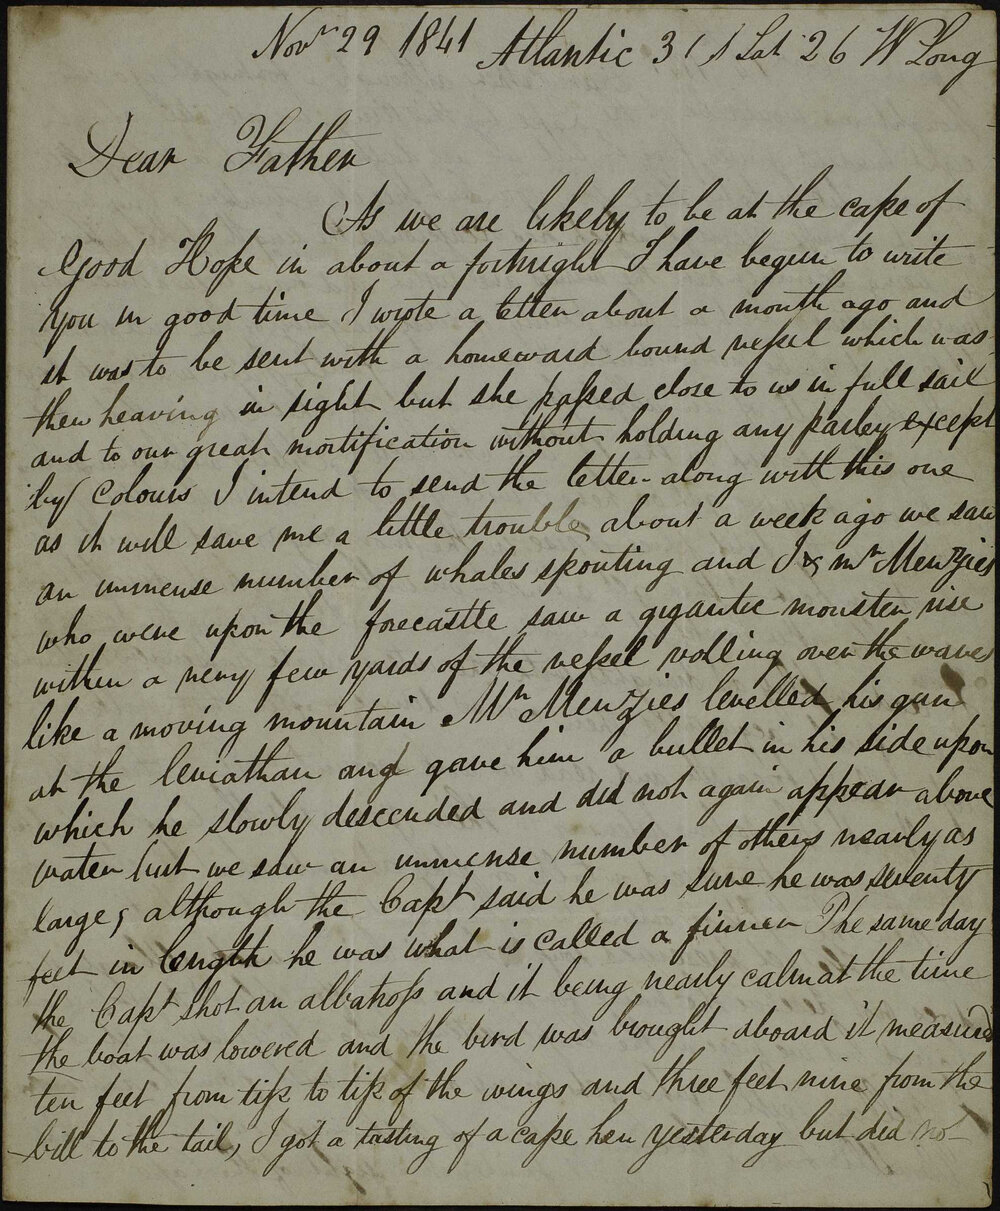 Novr 29 1841 Atlantic 31 S Lat 26 W Long
Dear Father
As we are likely to be at the cape of
Good Hope in about a fortnight I have begun to write
you in good time I wrote a letter about a month ago and
it was to be sent with a homeward bound vessel which was
then heaving in sight but she passed close to us in full sail
and to our great mortification without holding any parley except
by Colours I intend to send the letter along with this one
as it will save me a little trouble, about a week ago we saw
an immense number of whales spouting and I & Mr Menzies
who were upon the forecastle saw a gigantic monster rise
within a very few yards of the vessel rolling over the waves
like a moving mountain Mr Menzies levelled his gun
at the leviathan and gave him a bullet in his side upon
which he slowly descended and did not again appear above
water but we saw an immense number of others nearly as
large, although the Capt said he was sure he was seventy
feet in length he was what is called a finner The same day
the Capt shot an albatross and it being nearly calm at the time
the boat was lowered and the bird was brought aboard it measured
ten feet from tip to tip of the wings and three feet nine from the
bill to the tail, I got a tasting of a cape hen yesterday but did not